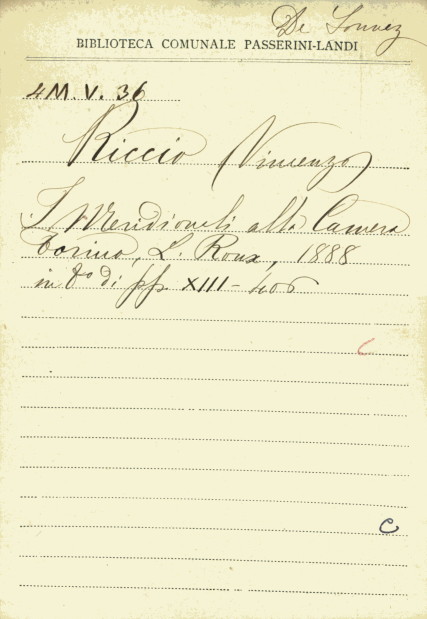 De
BIBLIOTECA COMUNALE PASSERINI-LANDI
4 M. V. 36
Riccio (Vincenzo)
I Meridionali alla Camera
Torino, L. Roux, 1888
in 8° di pp. XIII-406
C
C